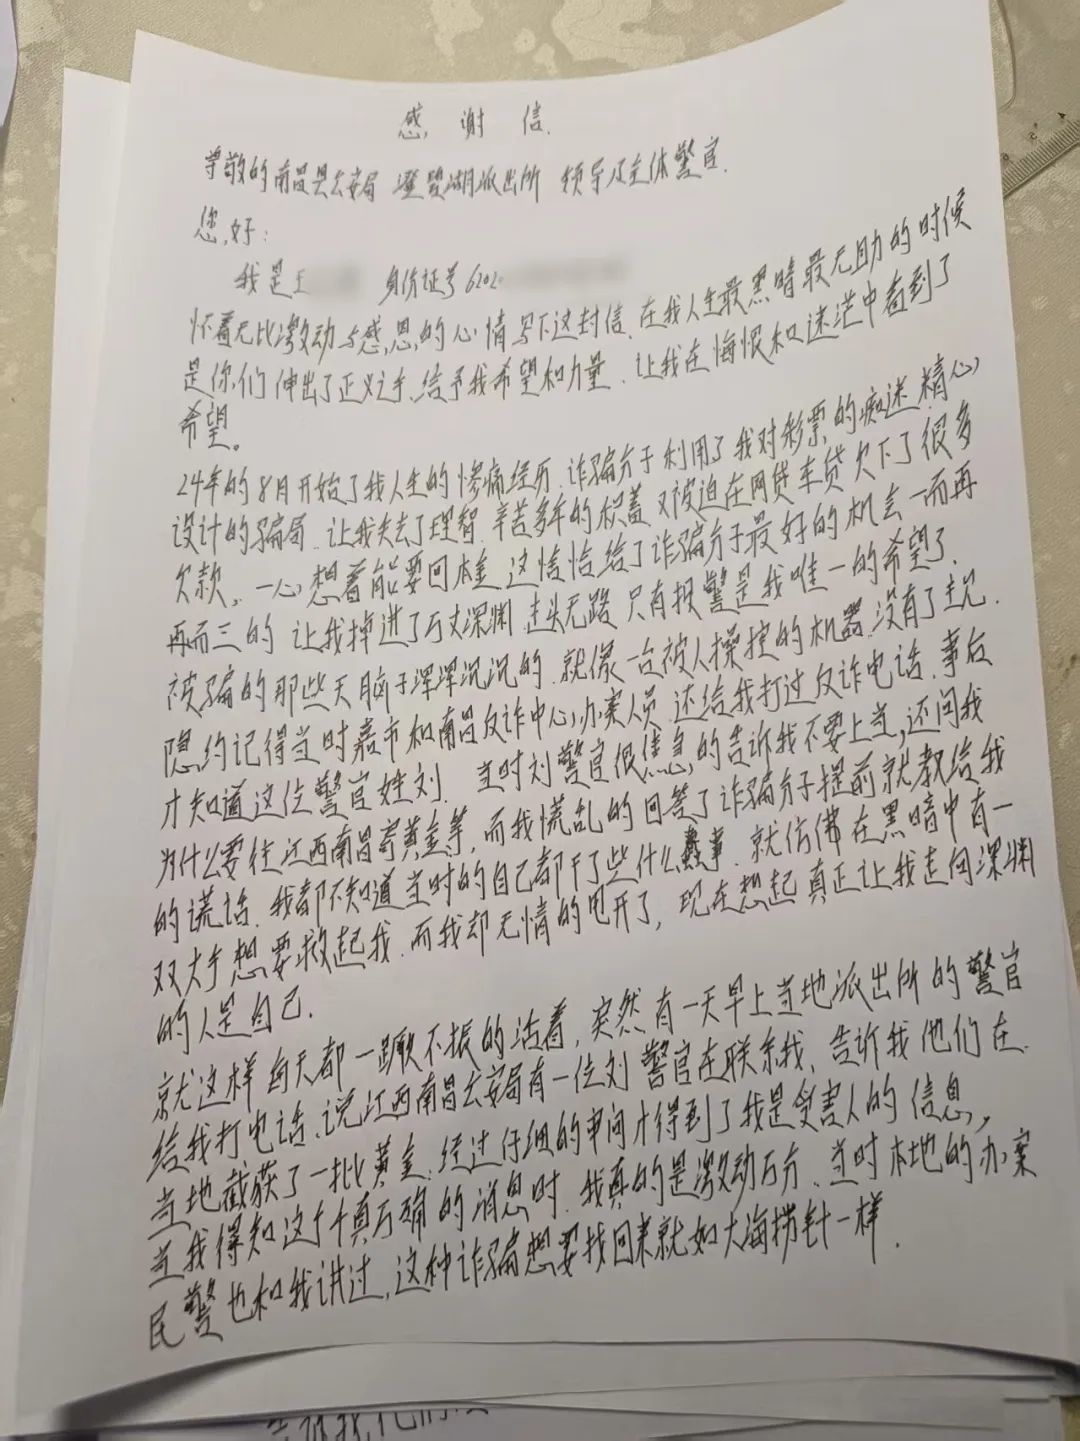 感谢信.
尊敬的南昌县公安局 澄碧湖派出所 领导及全体警官.
您好:
我是王 身份证号6202
怀着无比激动与感恩的心情写下这封信.在我人生最黑暗最无助的时候
是你们伸出了正义之手、给予我希望和力量、让我在悔恨和迷茫中看到了
希望。
24年的8月开始了我人生的惨痛经历.诈骗分子利用了我对彩票的痴迷 精心
设计的骗局.让我失去了理智.辛苦多年的积蓄 又被迫在网贷车贷欠下了很多
欠款,一心想着能要回本金 这恰恰给了诈骗分子最好的机会一而再
再而三的 让我掉进了万丈深渊,走头无路 只有报警是我唯一的希望了.
被骗的那些天脑子浑浑沉沉的.就像一台被人操控的机器.没有了主见.
隐约记得当时嘉市和南昌反诈中心办案人员.还给我打过反诈电话.事后
才知道这位警官姓刘. 当时刘警官很焦急的告诉我不要上当,还问我
为什么要往江西南昌寄黄金等,而我慌乱的回答了诈骗分子提前就教给我
的谎话.我都不知道当时的自己都干了些什么蠢事.就仿佛在黑暗中有一
双大手想要救起我.而我却无情的甩开了,现在想起真正让我走向深渊
的人是自己.
就这样每天都一蹶不振的活着,突然有一天早上当地派出所的警官
给我打电话、说江西南昌公安局有一位刘警官在联系我、告诉我他们在
当地截获了一批黄金.经过仔细的审问才得到了我是受害人的信息,
当我得知这个千真万确的消息时.我真的是激动万分、当时本地的办案
民警也和我讲过,这种诈骗想要找回来就如大海捞针一样.